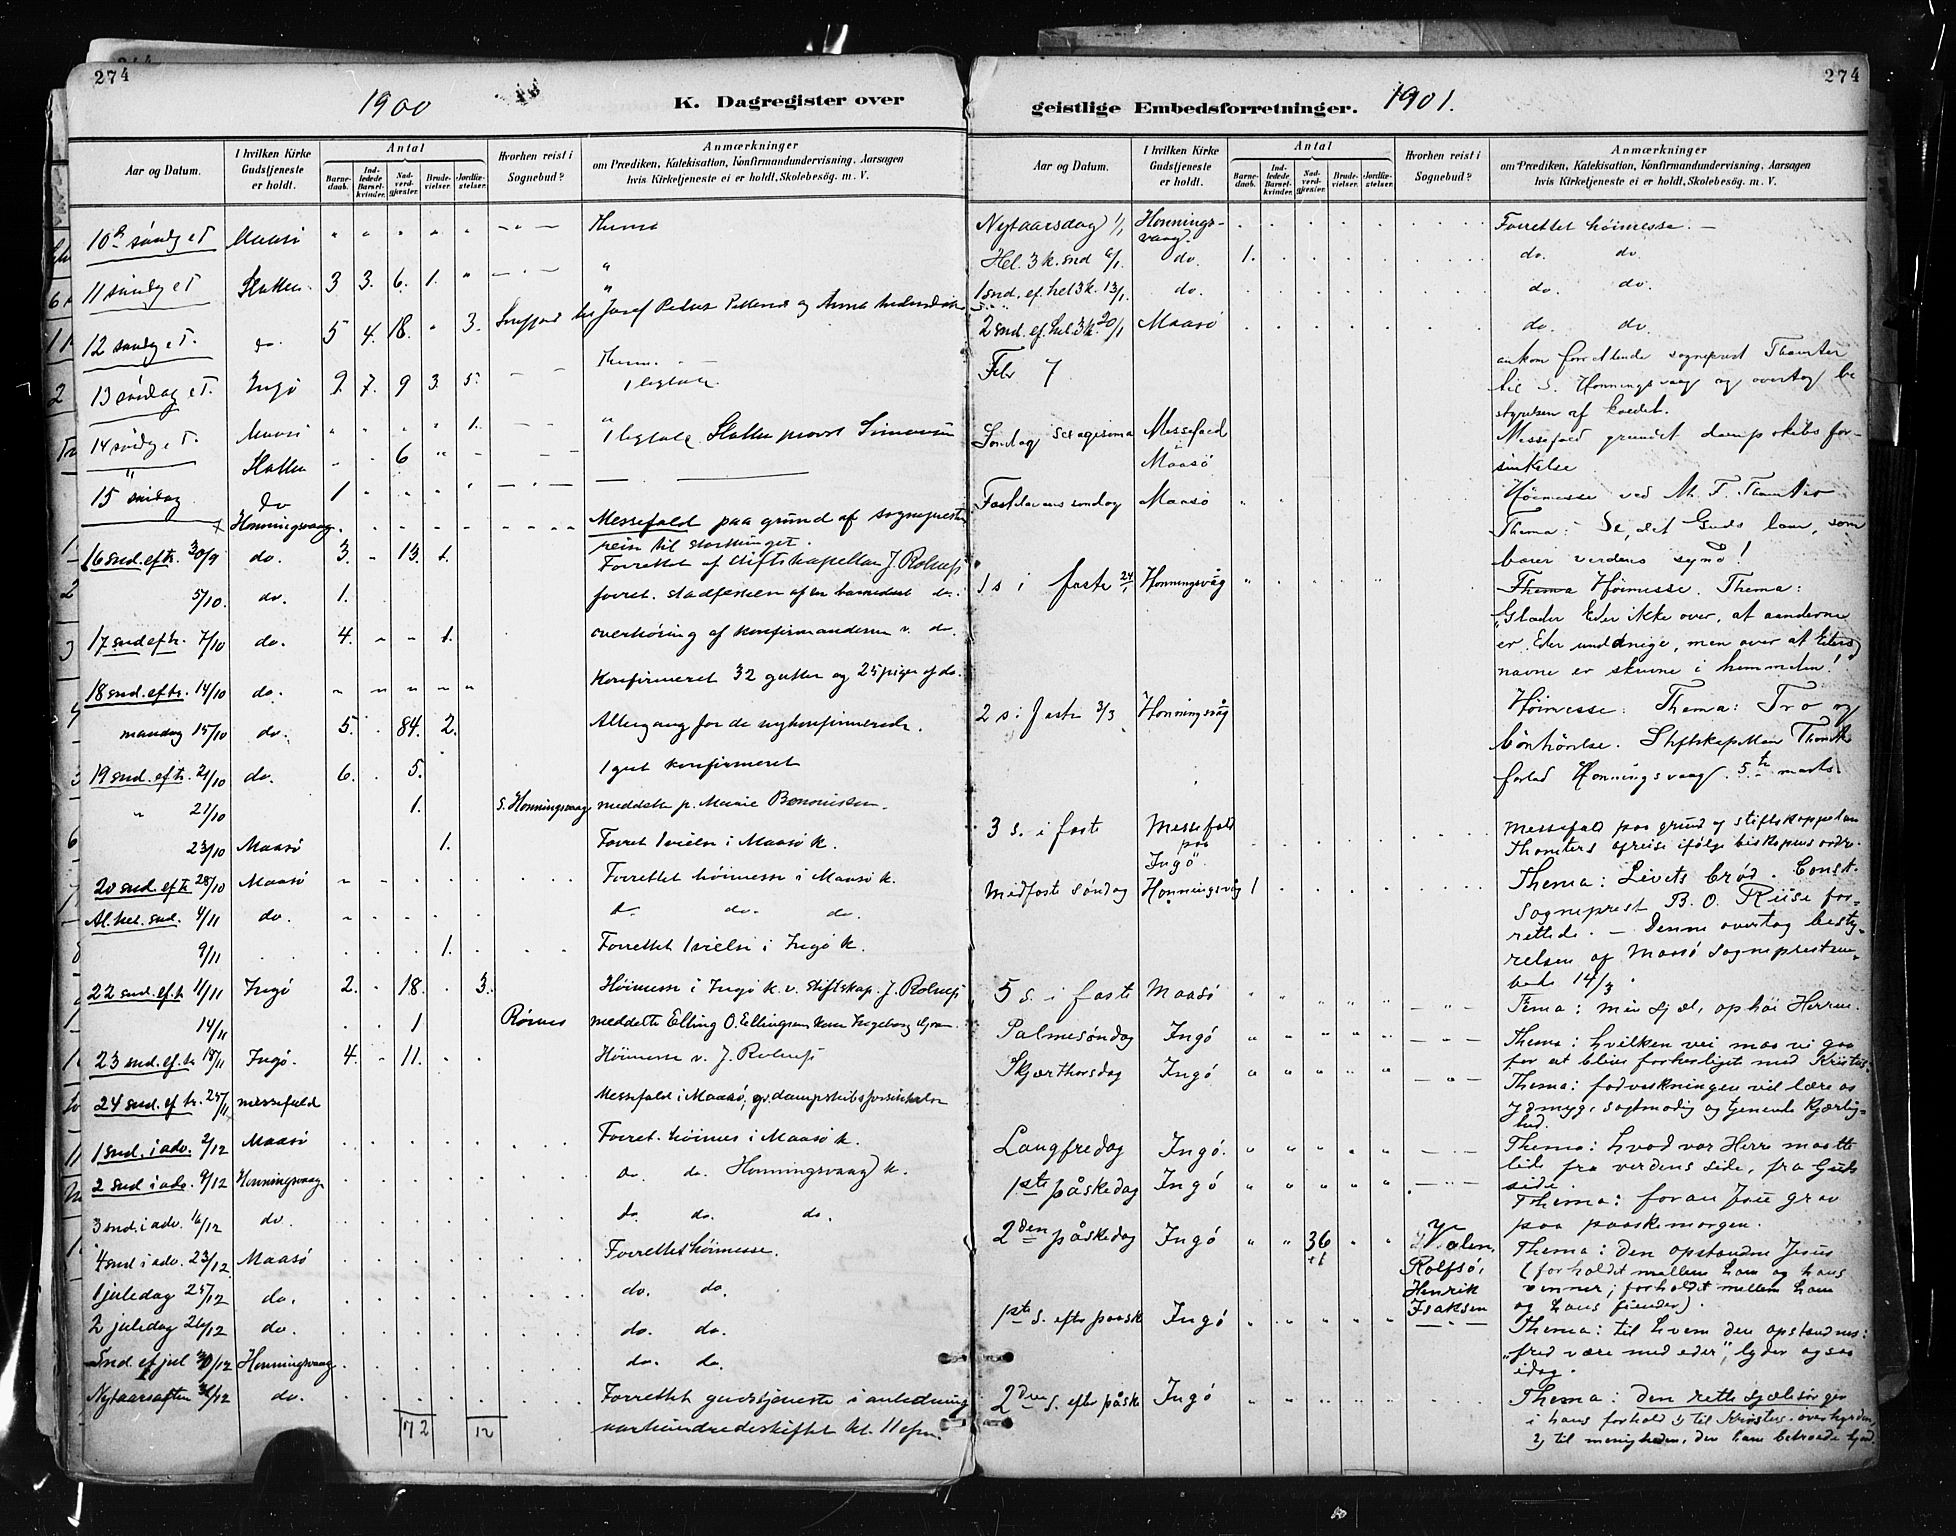 274
1900
K. Dagregister over
Aar og Datum.
I hvilken Kirke Gudstjeneste er holdt.
Antal
Barnedaab.
Indledede Barselkvinder.
Nadverdgjester.
Brudevielser.
Jordfæstelser.
Hvorhen reist i Sognebud?
Anmærkninger
om Prædiken, Katekisation, Konfirmandundervisning, Aarsagen
hvis Kirketjeneste ei er holdt, Skolebesøg. m. V.
10de søndg e T Maasø " " " " " Thema
11 søndg e T Slotten 3 3. 6. 1. " "
12 søndg e T. do. 5 4. 18. " 3.
13 søndag e T. Ingø 9. 7. 9 3. 5. Thema
1 ligtale
14 søndg e T. Maasø " " " " 1. "
" Slotten 6 1 ligtale Slotten provst
15 søndag do 1
Honningsvaag. Messefald paa grund af sogneprestens
reise til stortinget.
16 snd. eftr. 30/9 do. 3. - 13. 1. Forrettet af stiftskapellan J. Rolrup
5/10. do. 1. forret. stadfæstelse af en barnedaab do.
17 snd eftr. 7/10 do. 4. - - 1. overhøring af konfirmanderne v. do.
18 snd. eftr. 14/10 do. " " " " " Konfirmeret 32 gutter og 25 piger af do.
mandag 15/10 do. 5. . 84. 2. Altergang for de nykonfirmerede.
19 snd. eftr. 21/10 do. 6. . 5. 1 gut konfirmeret
" 21/10 1. S. Honningsvaag meddelte p. Marie
23/10 Maasø 1. Forret. 1 vielse i Maasø k.
20 snd. eftr. 28/10 Maasø Forrettet høimesse i Maasø k.
Al. hel. snd. 4/11 do. do. do. do.
9/11 1. Forrettet 1 vielse i Ingø k.
22 snd. eftr 11/11 Ingø 2. . 18. . 3. Høimesse i Ingø k. v. stiftskap. J. Rolrup
14/11 1 meddelte Elling O. Ellingsen
23 snd. ef. tr 18/11 Ingø. 4. - 11. Høimesse v. J. Rolrup
24 snd. ef tr. 25/11 messefald Messefald i Maasø, gr. dampskibsforsinkelse
1 snd. i adv. 2/12 Maasø Forret. høimes i Maasø k.
2 snd i adv. 9/12 Honningsvaag do. do. Honningsvaag k.
3 snd. i adv. 16/12 do. do. do. do.
4 snd i adv. 23/12 Maasø Forrettet høimesse.
1 juledag 25/12 do. do. do.
2 juledag 26/12 do. do. do.
Snd. ef jul 30/12 Honningsvaag do. do.
Nytaarsaften 31/12 do. Forrettet gudstjeneste i anledning
172 12 aarhundredeskiftet kl. 11 efm.
274
geistlige Embedsforretninger. 1901.
Aar og Datum.
I hvilken Kirke Gudstjeneste er holdt.
Antal
Barnedaab.
Indledede Barselkvinder.
Nadverdgjester.
Brudevielser.
Jordfæstelser.
Hvorhen reist i Sognebud?
Anmærkninger
om Prædiken, Katekisation, Konfirmandundervisning, Aarsagen
hvis Kirketjeneste ei er holdt, Skolebesøg. m. V.
Nytaarsdag 1/1 Honningsvaag. Forrettet høimesse. —
Hel. 3 k. snd 6/1. do. 1. do. do.
1 snd. ef. hel 3 k. 13/1. do. do. do.
2 snd. ef. hel. 3 k. 20/1 Maasø do. do.
Febr 7 ankom forrettende sogneprest
til S. Honningsvaag og overtog be
styrelsen af kaldet.
Søndag sexagesima Messefald Messefald grundet dampskibsfor-
Maasø sinkelse
Fastelavnssøndag Maasø Høimesse ved
Thema: Se, det Guds lam, som
bærer verdens synd!
1 s i faste 24/ Honningsvåg Thema Høimesse. Thema:
"Glæder Eder ikke over, at aanderne
er Eder underdanige, men over at Eders
navne er skrevne i himmelen!"
2 s. i faste 3/3 Honningsvåg Høimesse. Thema: Tro og
bønhørelse. Stiftskapellan
forlod Honningsvaag 5te marts
3 s. i faste Messefald paa Ingø. Messefald paa grund af stiftskappelan
afreise ifølge biskopens ordre.
Midfaste søndag Honningsvåg 1 Thema: Livets brød. Const.
sogneprest B. O. Riise for-
rettede. — Denne overtog besty-
relsen af Maasø sogneprestem-
bede 14/3.
5 s. i faste Maasø Tema: min sjæl, ophøi Herren.
Palmesøndag Ingø Thema: hvilken vei maa vi gaa
for at blive forherliget med Kristus.
Skjærthorsdag Ingø Thema: fodvaskningen vil lære os
ydmyg, sagtmodig og tjenende kjærlig-
hed.
Langfredag Ingø. Thema: hvad vor Herre maatte
lide fra verdens side, fra Guds
side.
1ste påskedag Ingø Thema: foran Jesu grav
paa paaskemorgen.
2den påskedag Ingø 36 Rolfsø, Henrik Isaksen Thema: den opstandne Jesus
(forholdet mellem ham og hans
venner, forholdet mellem ham
og hans fiender).
1ste s. efter paaske Ingø Thema: til hvem den opstandnes:
"fred være med eder", lyder ogsaa
idag.
2den s. efter påske Ingø Thema: den rette sjælesørger
i hans forhold 1) til Kristus-overhyrden,
2) til menigheden, den ham betroede hjord.